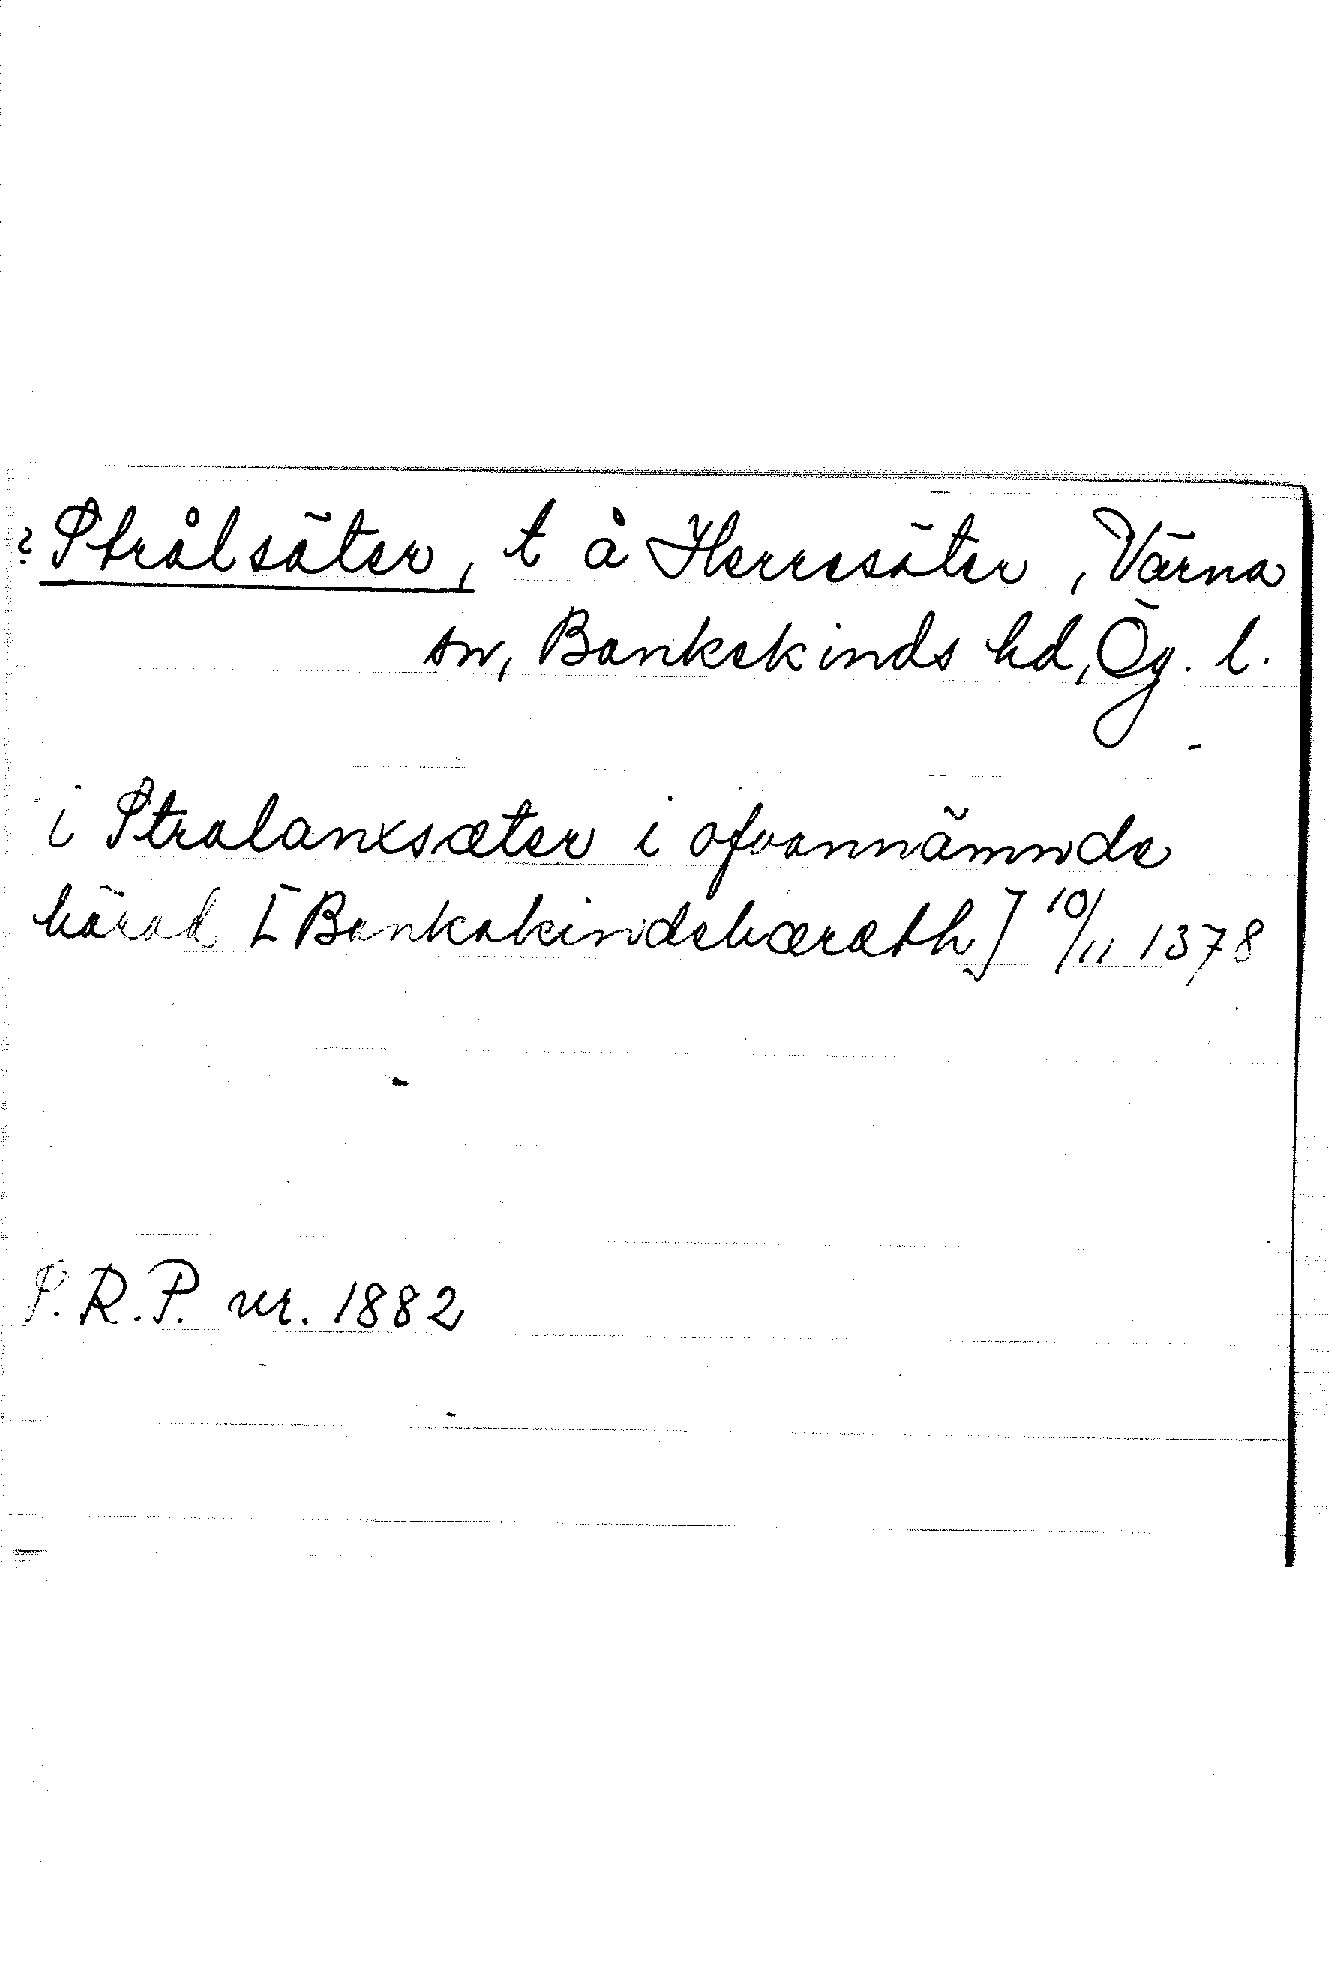 ? Strålsäter, t å Herresäter, Värna
sn, Bankekinds hd, Ög. l.
i Stralanxsæter i ofvannämnde
härad [Bankakindshæræth] 10/11 1378
S.R.P. nr. 1882